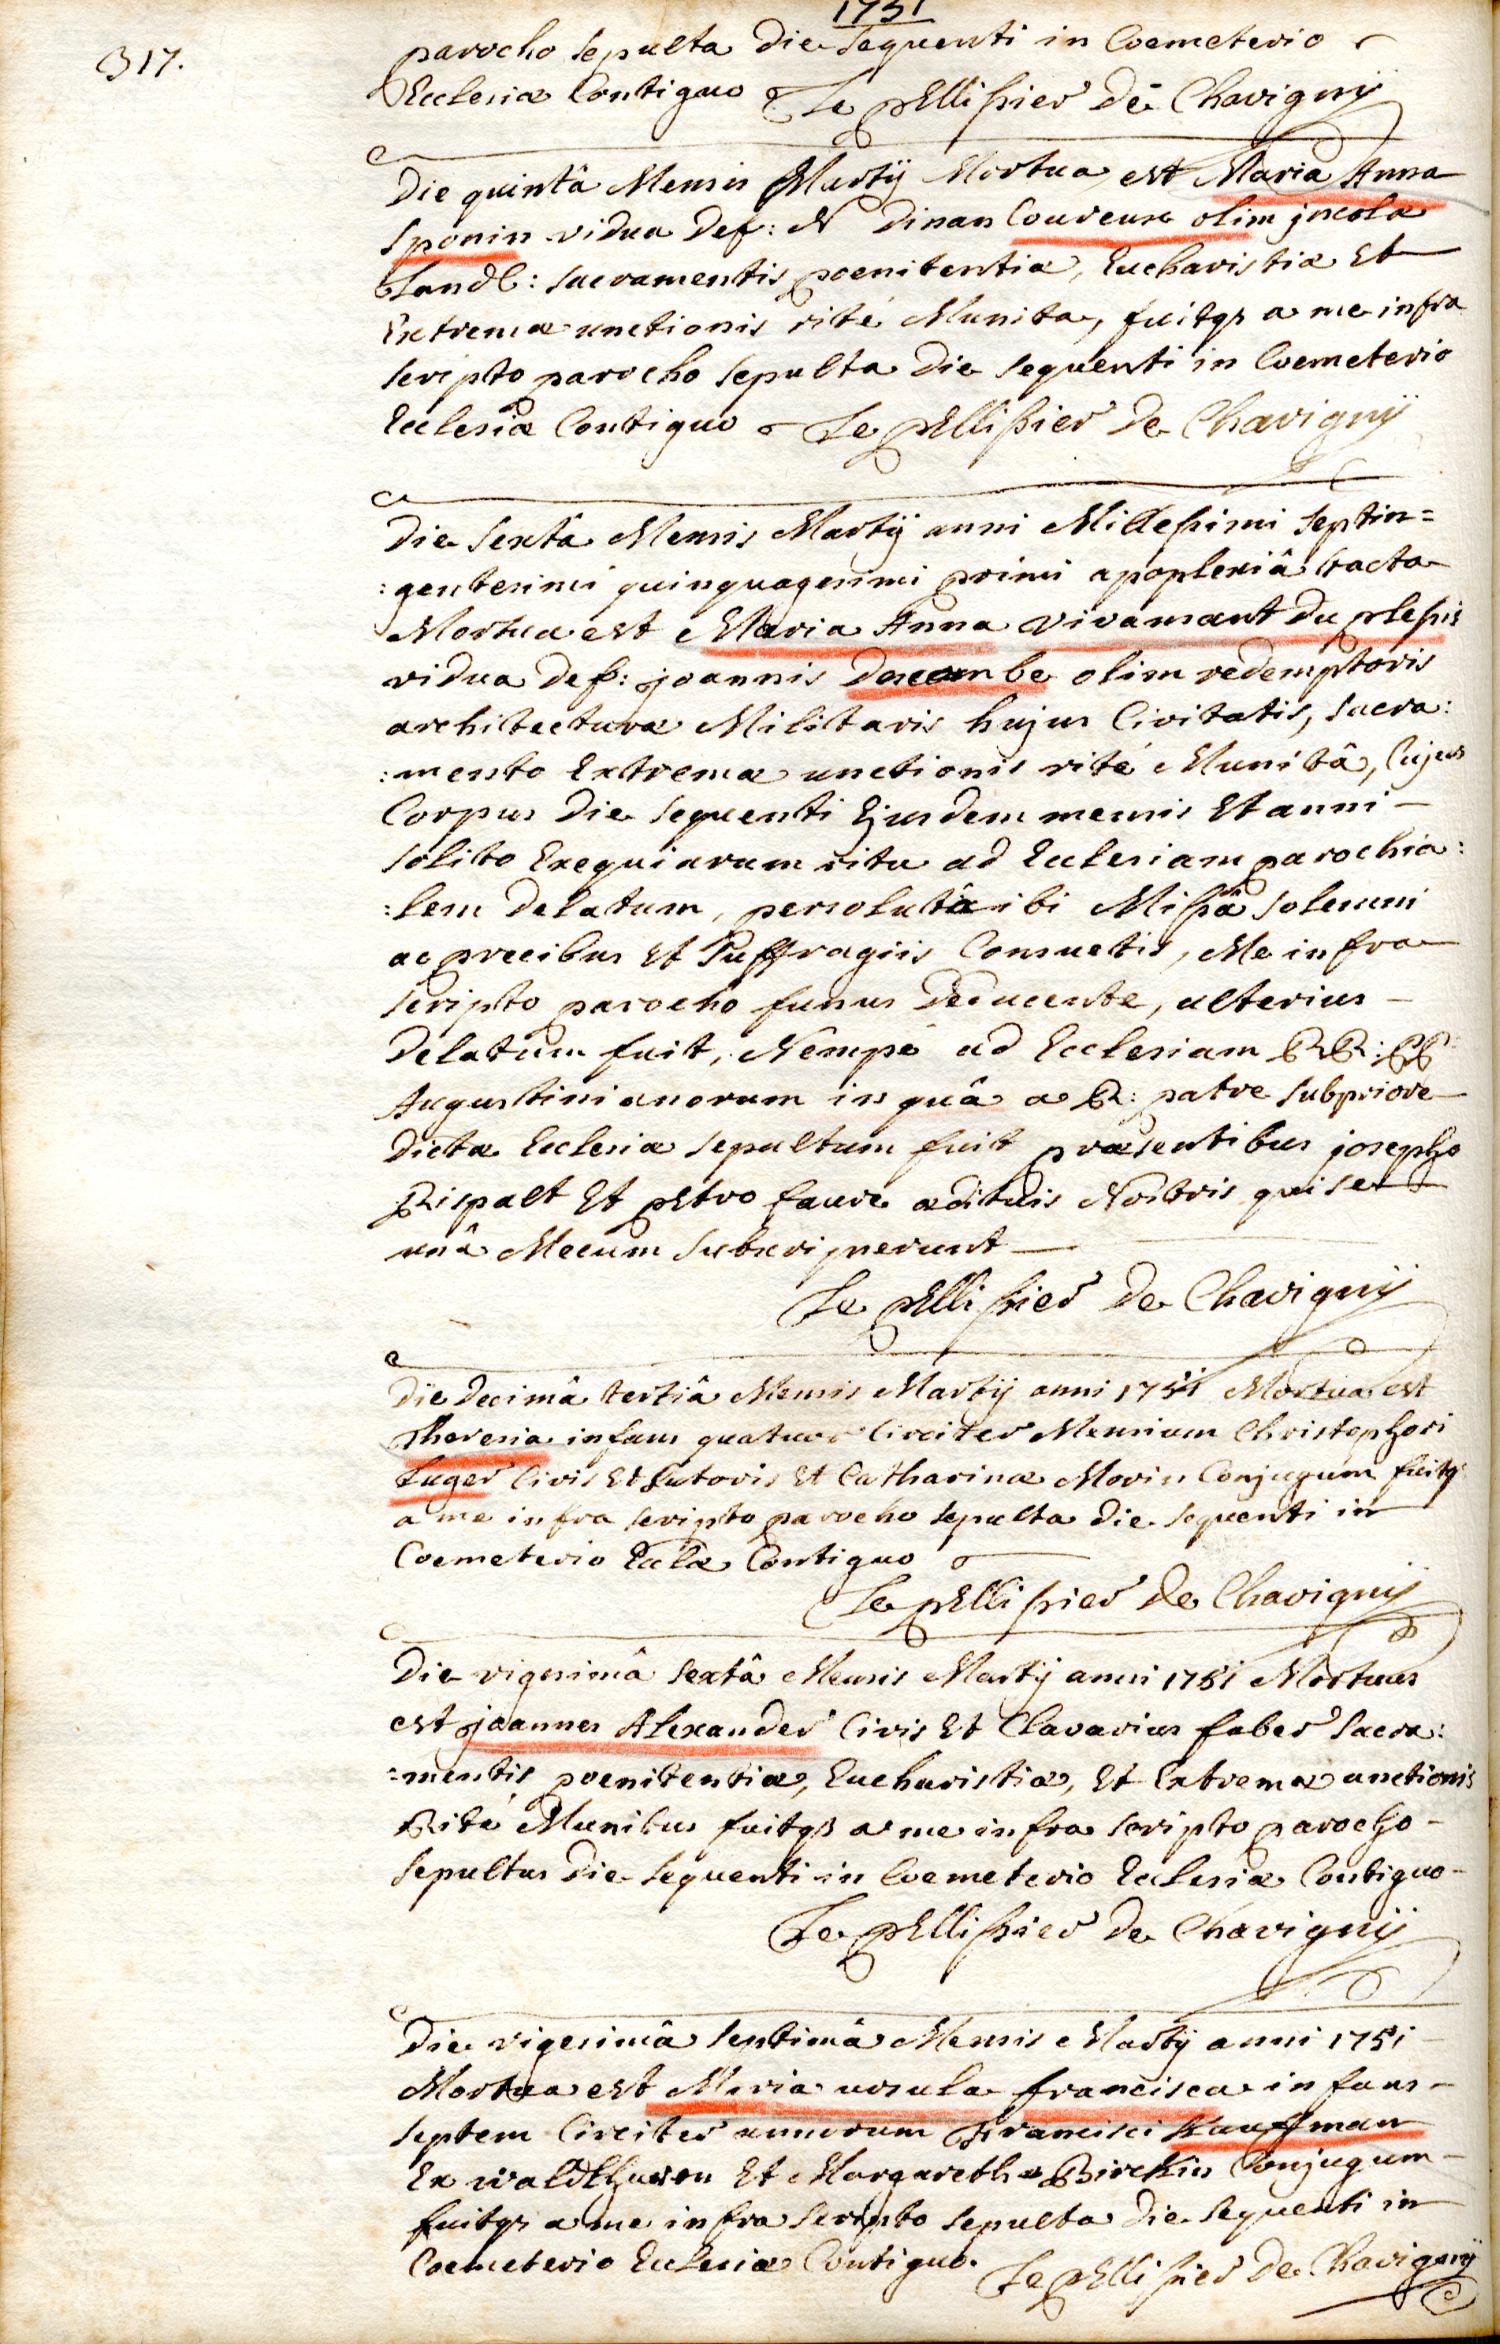 1751
317.
parocho sepulta die sequenti in Coemeterio
Ecclesiæ Contiguo Le pEllissier de Chavignÿ
Die quintâ Mensis Martÿ Mortua est Maria Anna
Sponin vidua def: N dinan Couvreur olim jncola
Land: sacramentis poenitentiæ, Eucharistiæ Et
Extremæ unctionis rité Munita, fuitqs a me infra
scripto parocho sepulta die sequenti in Coemeterio
Ecclesiæ Contiguo Le pEllissier de Chavignÿ
Die sextâ Mensis Martÿ anni Millesimi septin=
:gentesimi quinquagesimi primi apoplexiâ tacta
Mortua est Maria Anna vivamant du plessis
vidua def: joannis decombe olim redemptoris
architecturæ Militaris hujus Civitatis, sacra:
:mento Extremæ unctionis rité Munitâ, Cujus
Corpus die sequenti Ejusdem mensis Et anni –
solito Exequiarum ritu ad Ecclesiam parochia:
:lem delatum, persolutâ ibi Missâ solemni
ac precibus Et suffragiis Consuetis, Me infra
scripto parocho funus deducente, ulterius –
delatum fuit, Nempé ad Ecclesiam RR: PP
Augustinianorum in quâ a R: patre subpriore
dictæ Ecclesiæ sepultum fuit præsentibus josepho
Rispalt Et pEtro faure ædituis Nostris qui se
unâ Mecum subscripserunt —
Le pEllissier de Chavignÿ
Die decimâ tertiâ Mensis Martÿ anni 1751 Mortua est
Theresia infans quatuor Circiter Mensium Christophori
Luger Civis Et sutoris Et Catharinæ Morin Conjugum fuitqs
a me infra scripto parocho sepulta die sequenti in
Coemeterio Eccl&aelig; Contiguo
Le pEllissier de Chavignÿ
Die vigesimâ sextâ Mensis Martÿ anni 1751 Mortuus
est joannes Alexander Civis Et Clavarius faber Sacra:
:mentis poenitentiæ, Eucharistiæ, Et Extremæ unctionis
Rité Munitus fuitqs a me infra scripto parocho –
sepultus die sequenti in Coemeterio Ecclesiæ Contiguo –
Le pEllissier de Chavignÿ
Die vigesimâ septimâ Mensis Martÿ anni 1751
Mortua est Maria ursula francisca infans –
septem Circiter annorum Francisci Kauffman
Ex waldthuren Et Margarethæ Birckin Conjugum –
fuitqs a me infra scripto sepulta die sequenti in
Coemeterio Ecclesiæ Contiguo. Le pEllissier de Chavignÿ